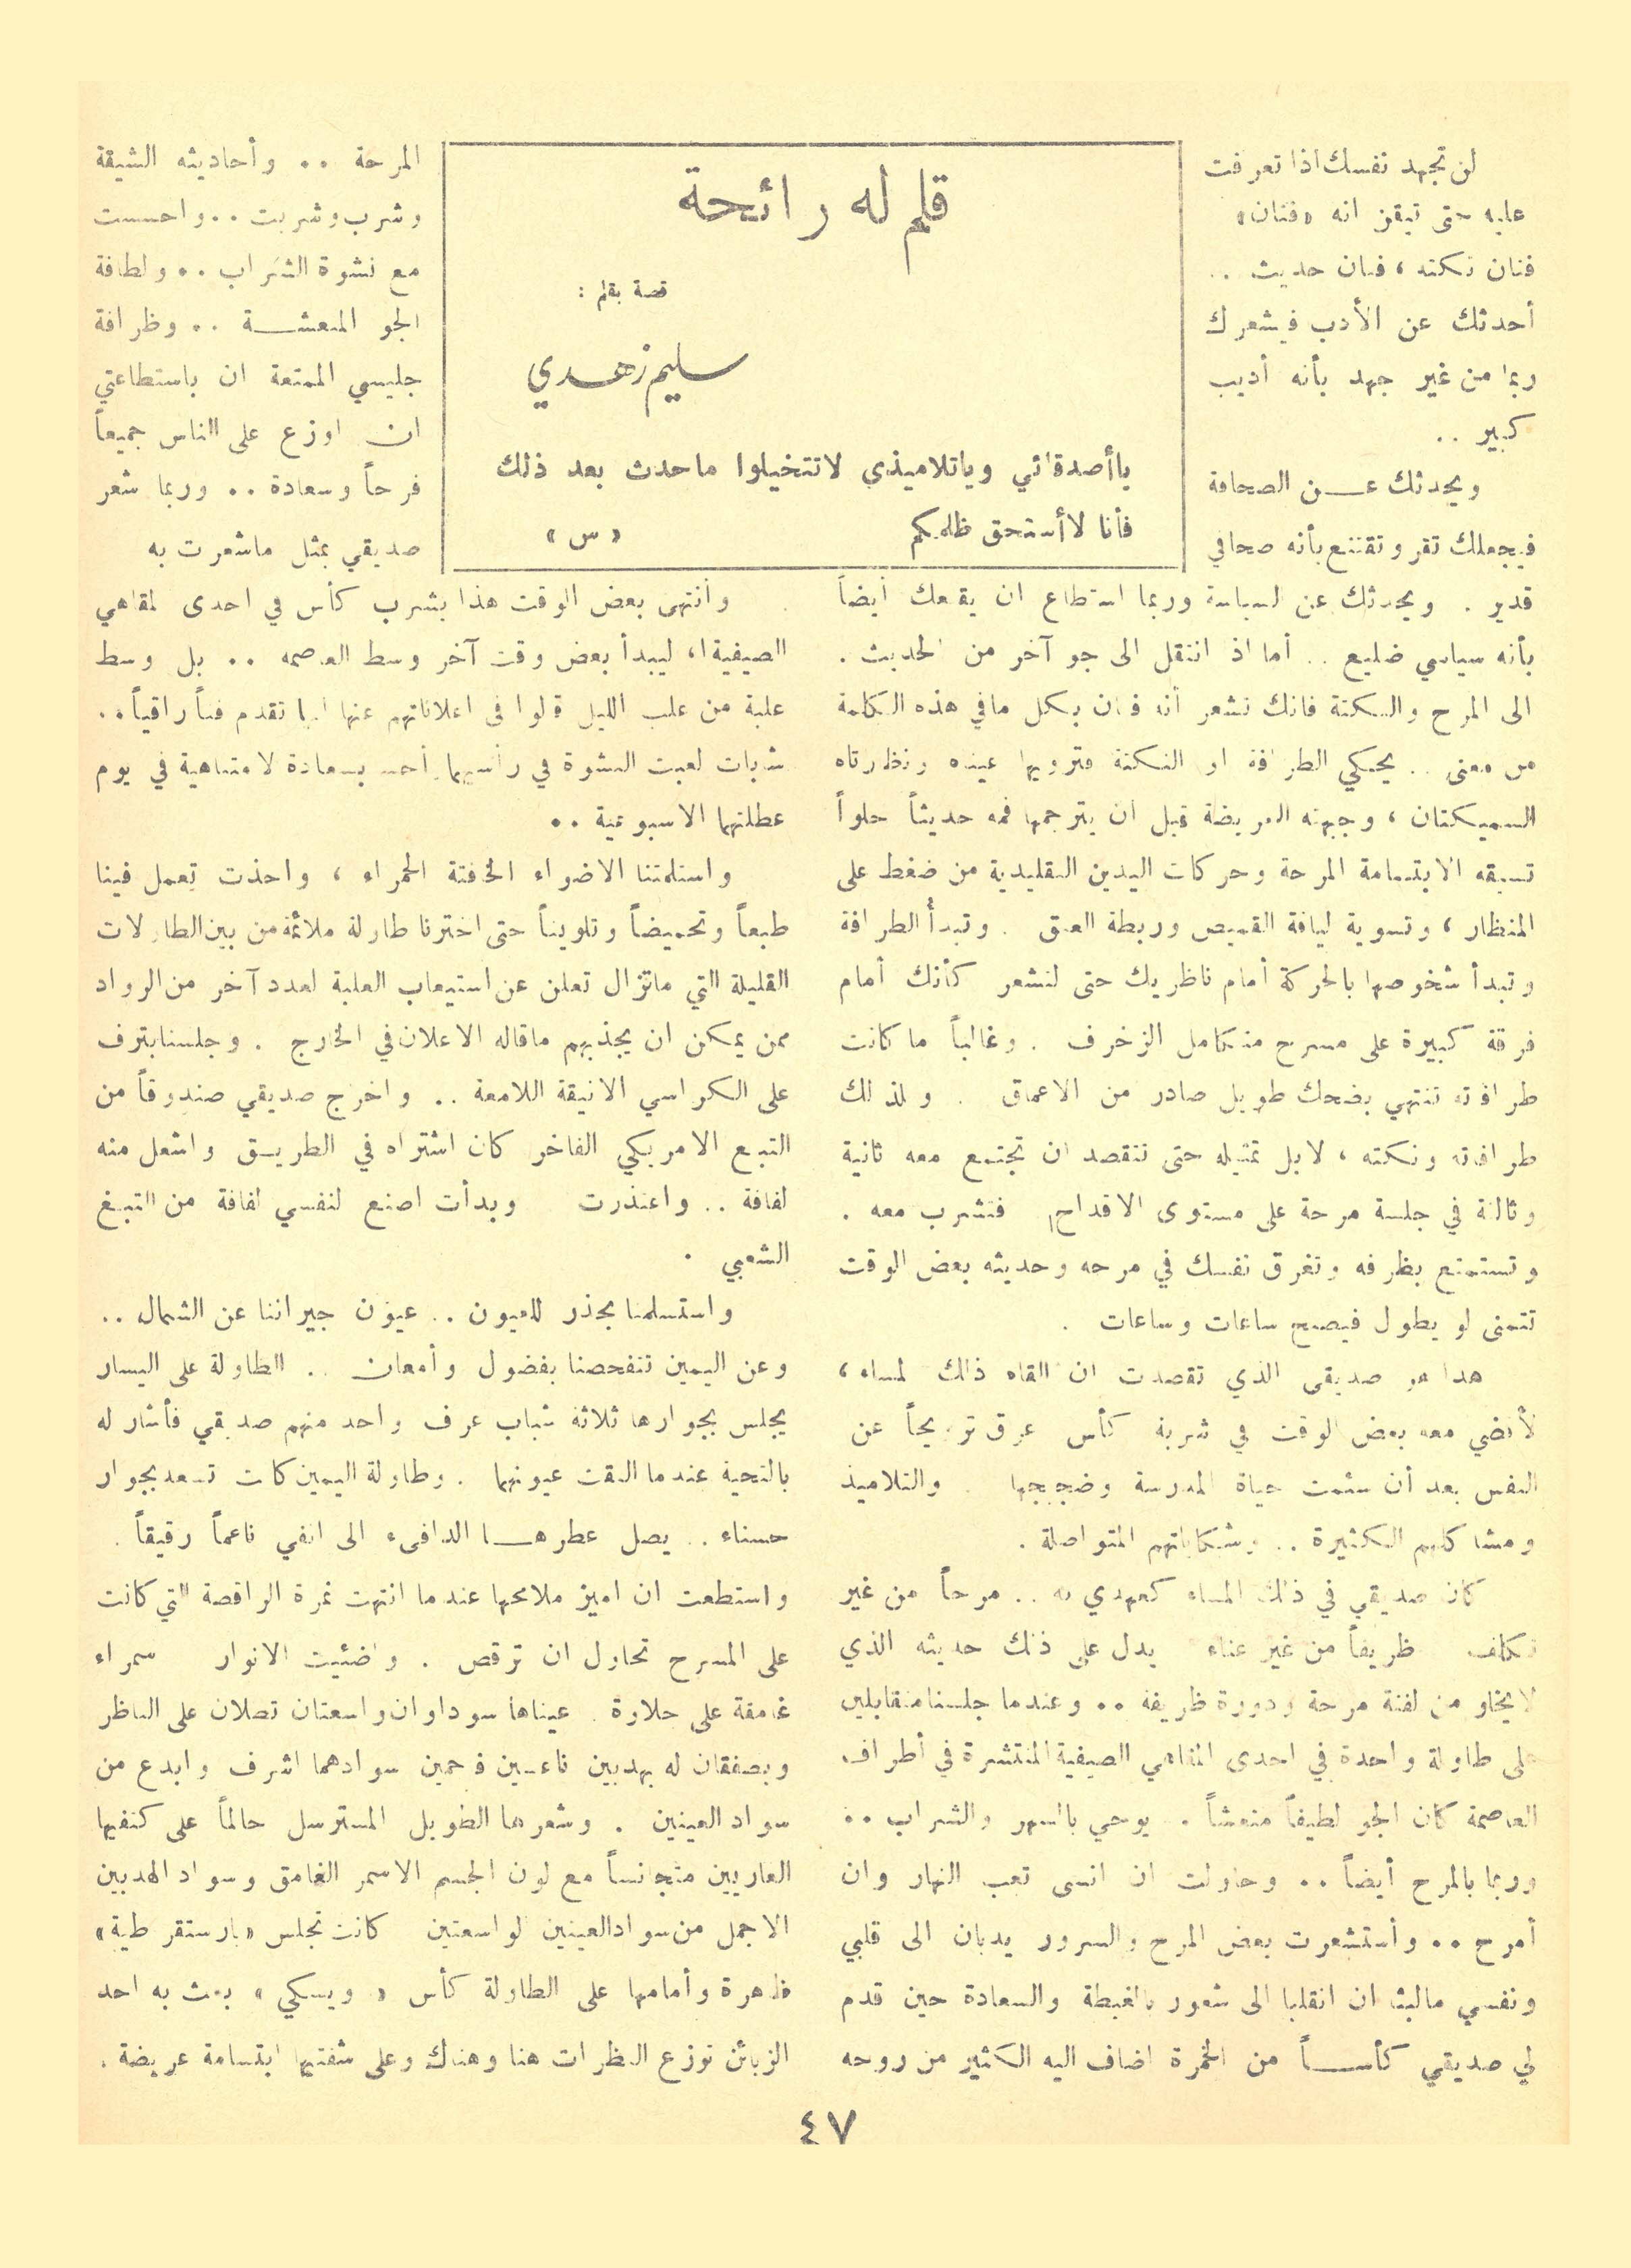 قلم له رائحة
قصة بقلم :
سليم زهدي
ياأصدقائي وياتلاميذي لاتتخيلوا ماحدث بعد ذلك
فأنا لاأستحق ظلمكم «س»
لن تجهد نفسك اذا تعرفت
عليه حتى تيقن انه «فنان»
فنان نكته ، فنان حديث ..
أحدثك عن الأدب فيشعرك
ربما من غير جهد بأنه أديب
كبير ..
ويحدثك عـــن الصحافة
فيجعلك تقر وتقتنع بأنه صحافي
قدير . ويحدثك عن السياسة وربما استطاع ان يقنعك أيضاً
بأنه سياسي ضليع .. أما اذ انتقل الى جو آخر من الحديث .
الى المرح والنكتة فانك تشعر أنه فنان بكل مافي هذه الكلمة
من معنى .. يحكي الطرافة او النكتة فترويها عيناه ونظارتاه
السميكتان ، وجبهته العريضة قبل ان يترجمها فمه حديثاً حلواً
تسبقه الابتسامة المرحة وحركات اليدين التقليدية من ضغط على
المنظار ، وتسوية لياقة القميص وربطة العنق . وتبدأ الطرافة
وتبدأ شخوصها بالحركة أمام ناظريك حتى لتشعر كأنك أمام
فرقة كبيرة على مسرح متكامل الزخرف . وغالباً ما كانت
طرافته تنتهي بضحك طويل صادر من الاعماق . ولذلك
طرافته ونكته ، لابل تمثيله حتى تتقصد ان تجتمع معه ثانية
وثالثة في جلسة مرحة على مستوى الاقداح فتشرب معه .
وتستمتع بظرفه وتغرق نفسك في مرحه وحديثه بعض الوقت
تتمنى لو يطول فيصبح ساعات وساعات .
هذا هو صديقي الذي تقصدت ان القاه ذلك المساء ،
لأقضي معه بعض الوقت في شربة كأس عرق ترويحاً عن
النفس بعد أن سئمت حياة المدرسة وضجيجها . والتلاميذ
ومشاكلهم الكثيرة .. وشكاياتهم المتواصلة .
كان صديقي في ذلك المساء كعهدي به .. مرحاً من غير
تكلف ظريفاً من غير عناء يدل على ذلك حديثه الذي
لايخلو من لفتة مرحة ودورة ظريفة .. وعندما جلسنا متقابلين
على طاولة واحدة في احدى المقاهي الصيفية المنتشرة في أطراف
العاصمة كان الجو لطيفاً منعشاً . يوحي بالسهر والشراب ..
وربما بالمرح أيضاً .. وحاولت ان انسى تعب النهار وان
أمرح .. وأستشعرت بعض المرح والسرور يدبان الى قلبي
ونفسي مالبثا ان انقلبا الى شعور بالغبطة والسعادة حين قدم
لي صديقي كأســاً من الخمرة اضاف اليه الكثير من روحه
المرحة .. وأحاديثه الشيقة
وشرب وشربت .. واحسست
مع نشوة الشراب .. ولطافة
الجو المنعشــة .. وظرافة
جليسي الممتعة ان باستطاعتي
ان اوزع على الناس جميعاً
فرحاً وسعادة .. وربما شعر
صديقي بمثل ماشعرت به
وانتهى بعض الوقت هذا بشرب كأس في احدى المقاهي
الصيفية ، ليبدأ بعض وقت آخر وسط العاصمه .. بل وسط
علبة من علب الليل قالوا في اعلاناتهم عنها انها تقدم فناً راقياً ..
شابان لعبت النشوة في رأسيهما احسا بسعادة لامتناهية في يوم
عطلتهما الاسبوعية ..
واستلمتنا الاضواء الخافتة الحمراء ، واخذت تعمل فينا
طبعاً وتحميضاً وتلويناً حتى اخترنا طاولة ملائمة من بين الطاولات
القليلة التي ماتزال تعلن عن استيعاب العلبة لعدد آخر من الرواد
ممن يمكن ان يجذبهم ماقاله الاعلان في الخارج . وجلسنا بترف
على الكراسي الانيقة اللامعة .. واخرج صديقي صندوقاً من
التبغ الامريكي الفاخر كان اشتراه في الطريـق واشعل منه
لفافة .. واعتذرت وبدأت اصنع لنفسي لفافة من التبغ
الشعبي .
واستسلمنا بحذر للعيون .. عيون جيراننا عن الشمال ..
وعن اليمين تتفحصنا بفضول وأمعان .. الطاولة على اليسار
يجلس بجوارها ثلاثة شباب عرف واحد منهم صديقي فأشار له
بالتحية عندما التقت عيونهما . وطاولة اليمين كانت تسعد بجوار
حسناء .. يصل عطرهـــا الدافىء الى انفي ناعماً رقيقاً .
واستطعت ان اميز ملامحها عندما انتهت نمرة الراقصة التي كانت
على المسرح تحاول ان ترقص . واضئيت الانوار سمراء
غامقة على حلاوة . عيناها سوداوان واسعتان تطلان على الناظر
ويصفقان له بهدبين ناعسين فاحمين سوادهما اشرف وابدع من
سواد العينين . وشعرها الطويل المسترسل حالماً على كتفيها
العاريين متجانساً مع لون الجسم الاسمر الغامق وسواد الهدبين
الاجمل من سواد العينين الواسعتين كانت تجلس «بارستقراطية»
ظاهرة وأمامها على الطاولة كأس « ويسكي » بعث به احد
الزبائن توزع النظرات هنا وهناك وعلى شفتيها ابتسامة عريضة .
٤٧